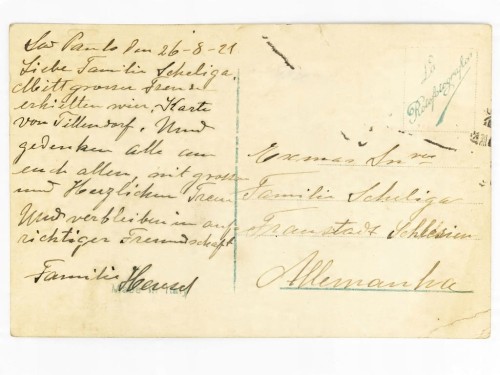 Sao Paulo den 26-8-21
Liebe Familie Scheliga.
Mitt grosser Freude
erhilten wir, Karte
von Tillendorf. Und
gedenken alle an
euch allen, mit grosser
und Herzlichen Freu
Und verbleiben in auf
richtiger Freundschaft
Familie Hensel
Exmas Snres
Familie Scheliga
Fraustadt Schlesien
Allemanha